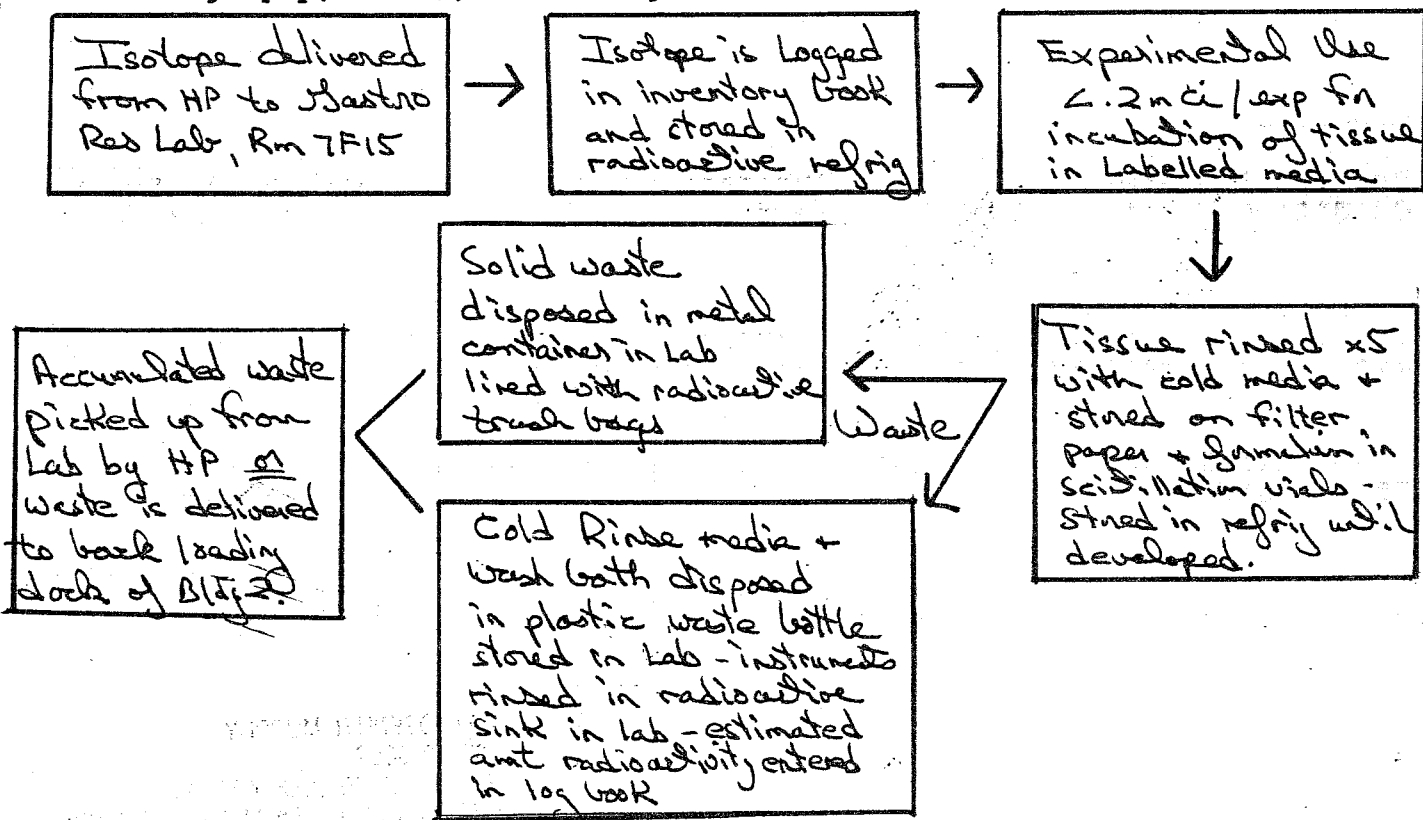 Isotope delivered
from HP to Gastro
Res Lab, Rm 7F15
Isotope is Logged
in inventory book
and stored in
radioactive refrig
Experimental Use
<.2mCi/exp for
incubation of tissue
in Labelled media
Tissue rinsed x5
with cold media +
stored on filter
paper + formalin in
scintillation vials -
stored in refrig until
developed.
Waste
Solid waste
disposed in metal
container in Lab
lined with radioactive
trash bags
Cold Rinse media +
wash both disposed
in plastic waste bottle
stored in Lab - instruments
rinsed in radioactive
sink in lab - estimated
amt radioactivity entered
in log book
Accumulated waste
picked up from
Lab by HP or
waste is delivered
to back loading
dock of Bldg 2.